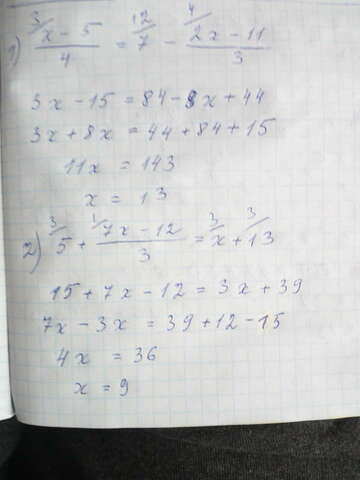 1) ³/ (x - 5)/4 = ¹²/ 7 - ⁴/ (2x - 11)/3
3x - 15 = 84 - 8x + 44
3x + 8x = 44 + 84 + 15
11x = 143
x = 13
2) ³/ 5 + ¹/ (7x - 12)/3 = ³/ x + ³/ 13
15 + 7x - 12 = 3x + 39
7x - 3x = 39 + 12 - 15
4x = 36
x = 9